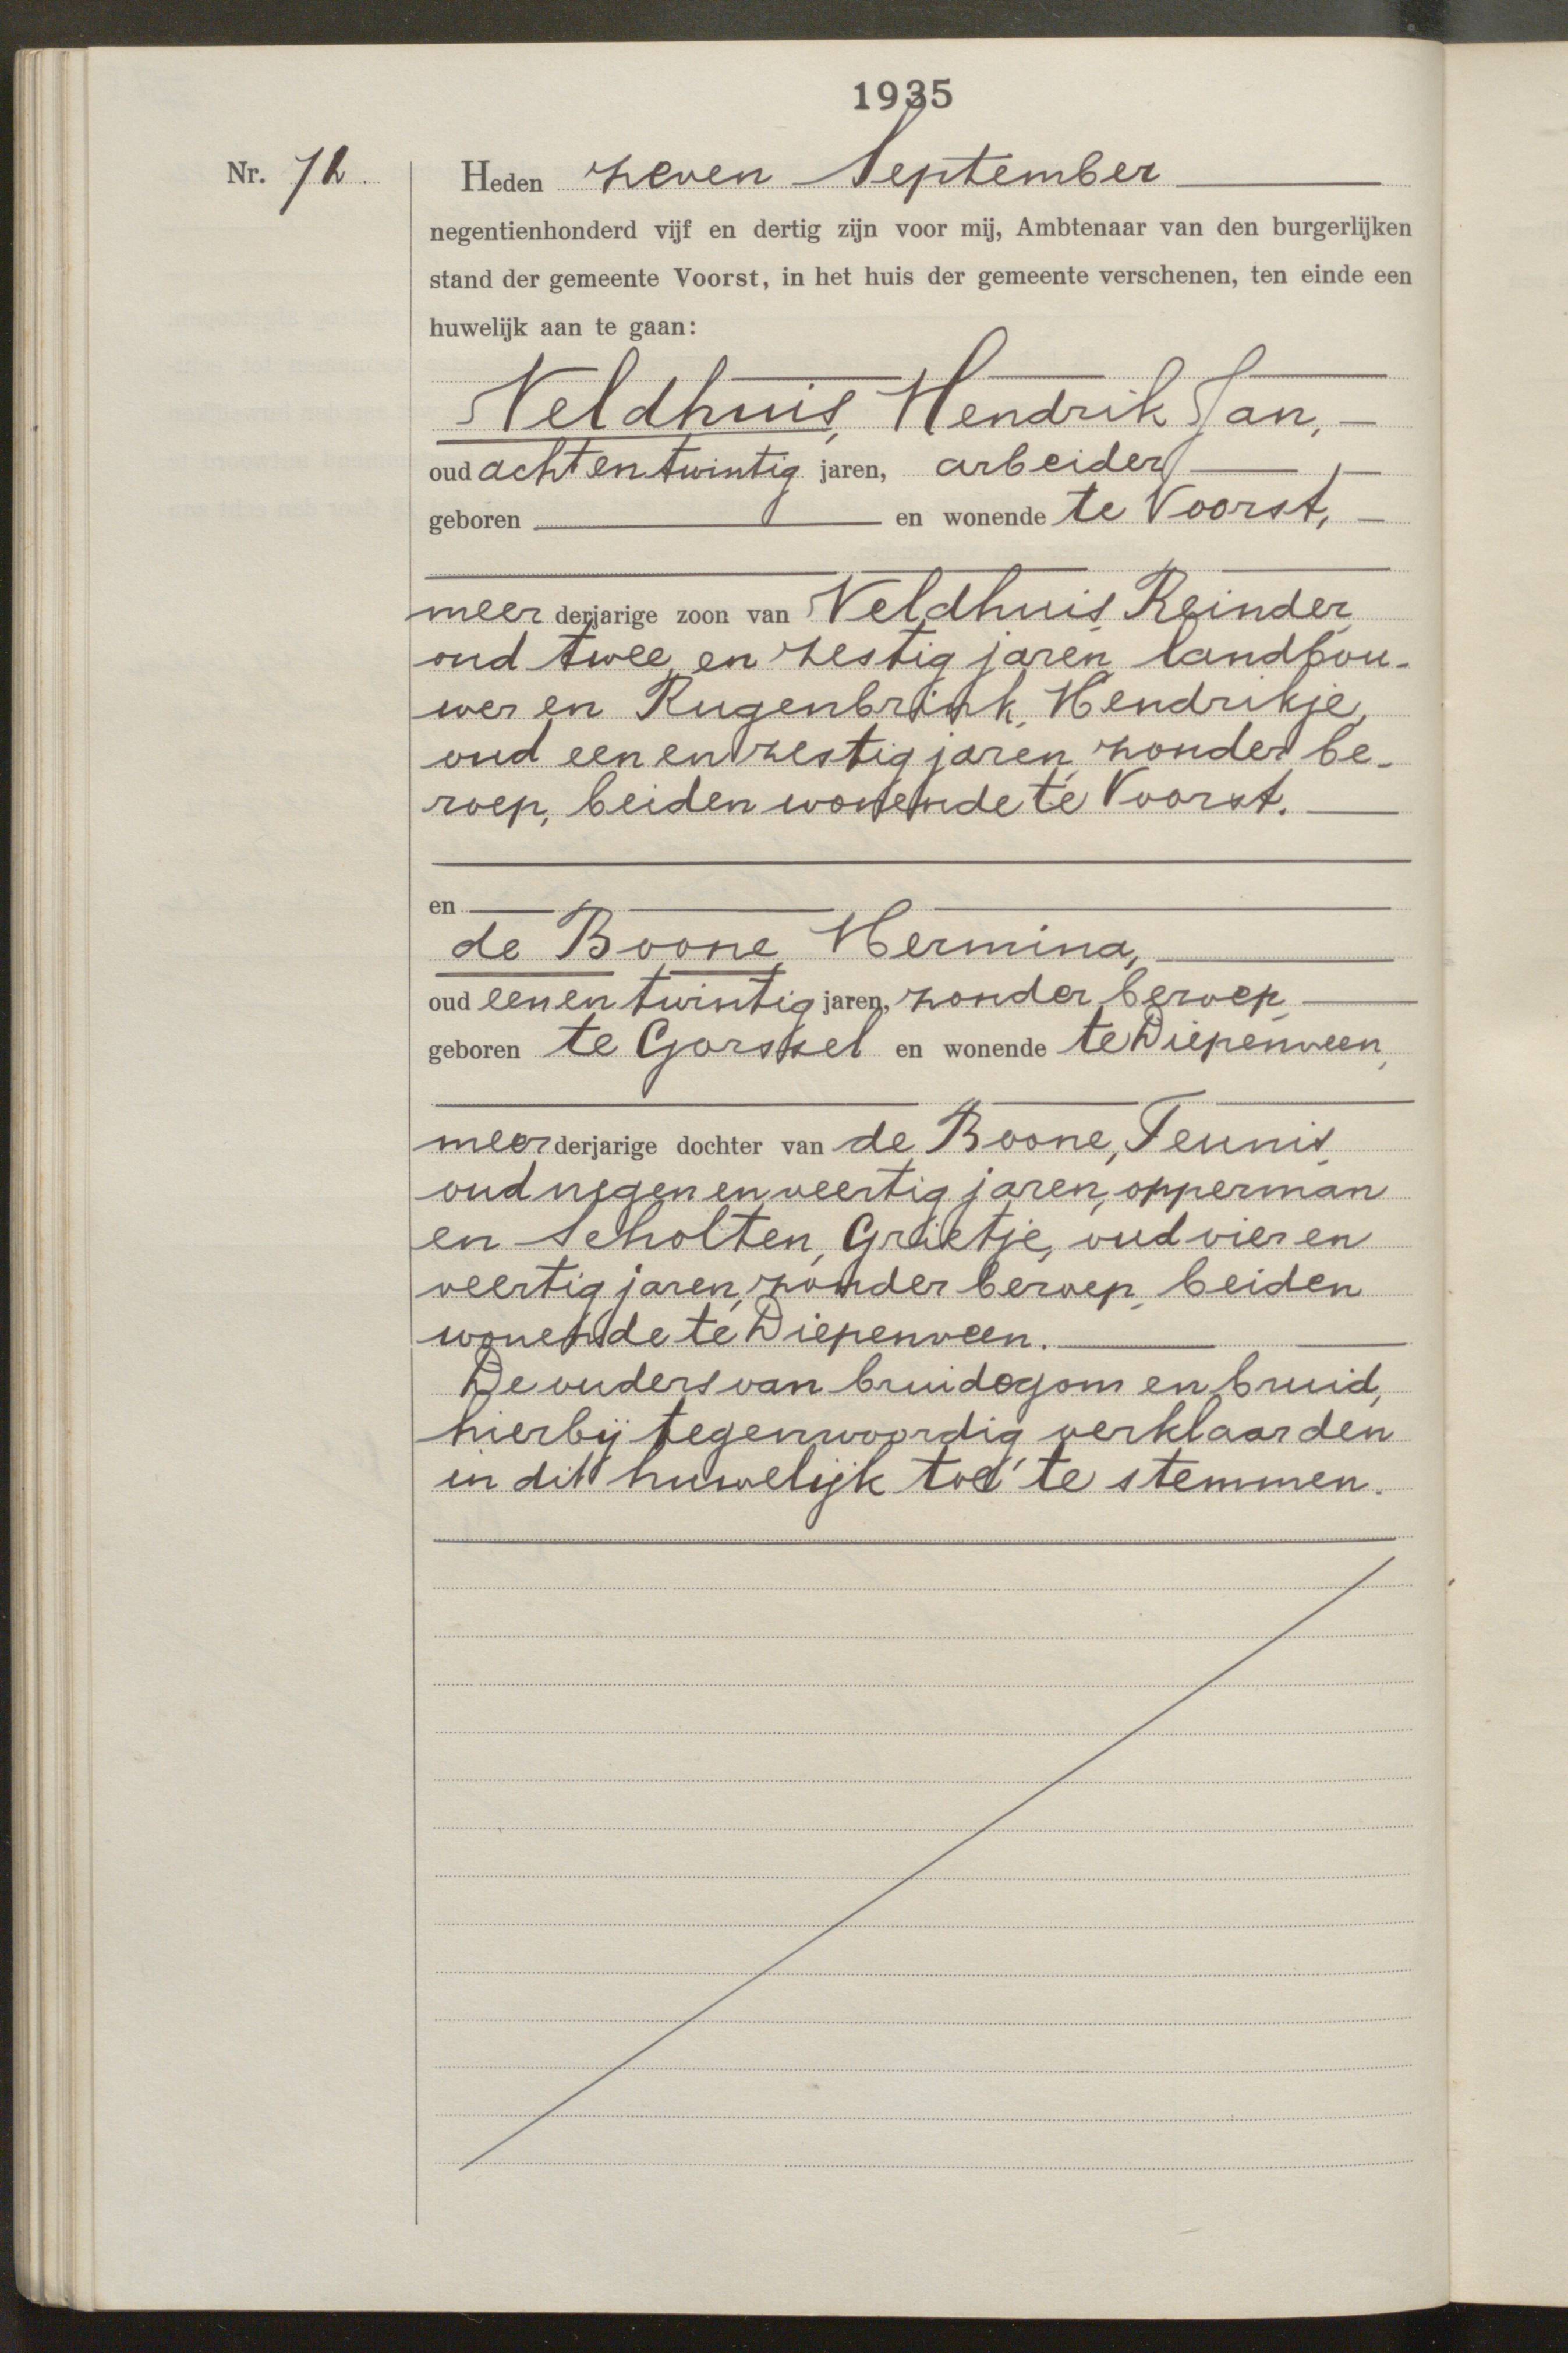 1935
Nr. 72.
Heden zeven September
negentienhonderd vijf en dertig zijn voor mij, Ambtenaar van den burgerlijken
stand der gemeente Voorst, in het huis der gemeente verschenen, ten einde een
huwelijk aan te gaan:
Veldhuis, Hendrik Jan,
oud achtentwintig jaren, arbeider,
geboren en wonende te Voorst,
meerderjarige zoon van Veldhuis, Reinder,
oud twee en zestig jaren, landbou-
wer en Rugenbrink, Hendrikje,
oud een en zestig jaren, zonder be-
roep, beiden wonende te Voorst.
en
de Boone, Hermina,
oud eenentwintig jaren, zonder beroep,
geboren te Gorssel en wonende te Diepenveen,
meerderjarige dochter van de Boone, Teunis,
oud negen en veertig jaren, opperman
en Scholten, Grietje, oud vier en
veertig jaren, zonder beroep, beiden
wonende te Diepenveen.
De ouders van bruidegom en bruid,
hierbij tegenwoordig verklaarden
in dit huwelijk toe te stemmen.